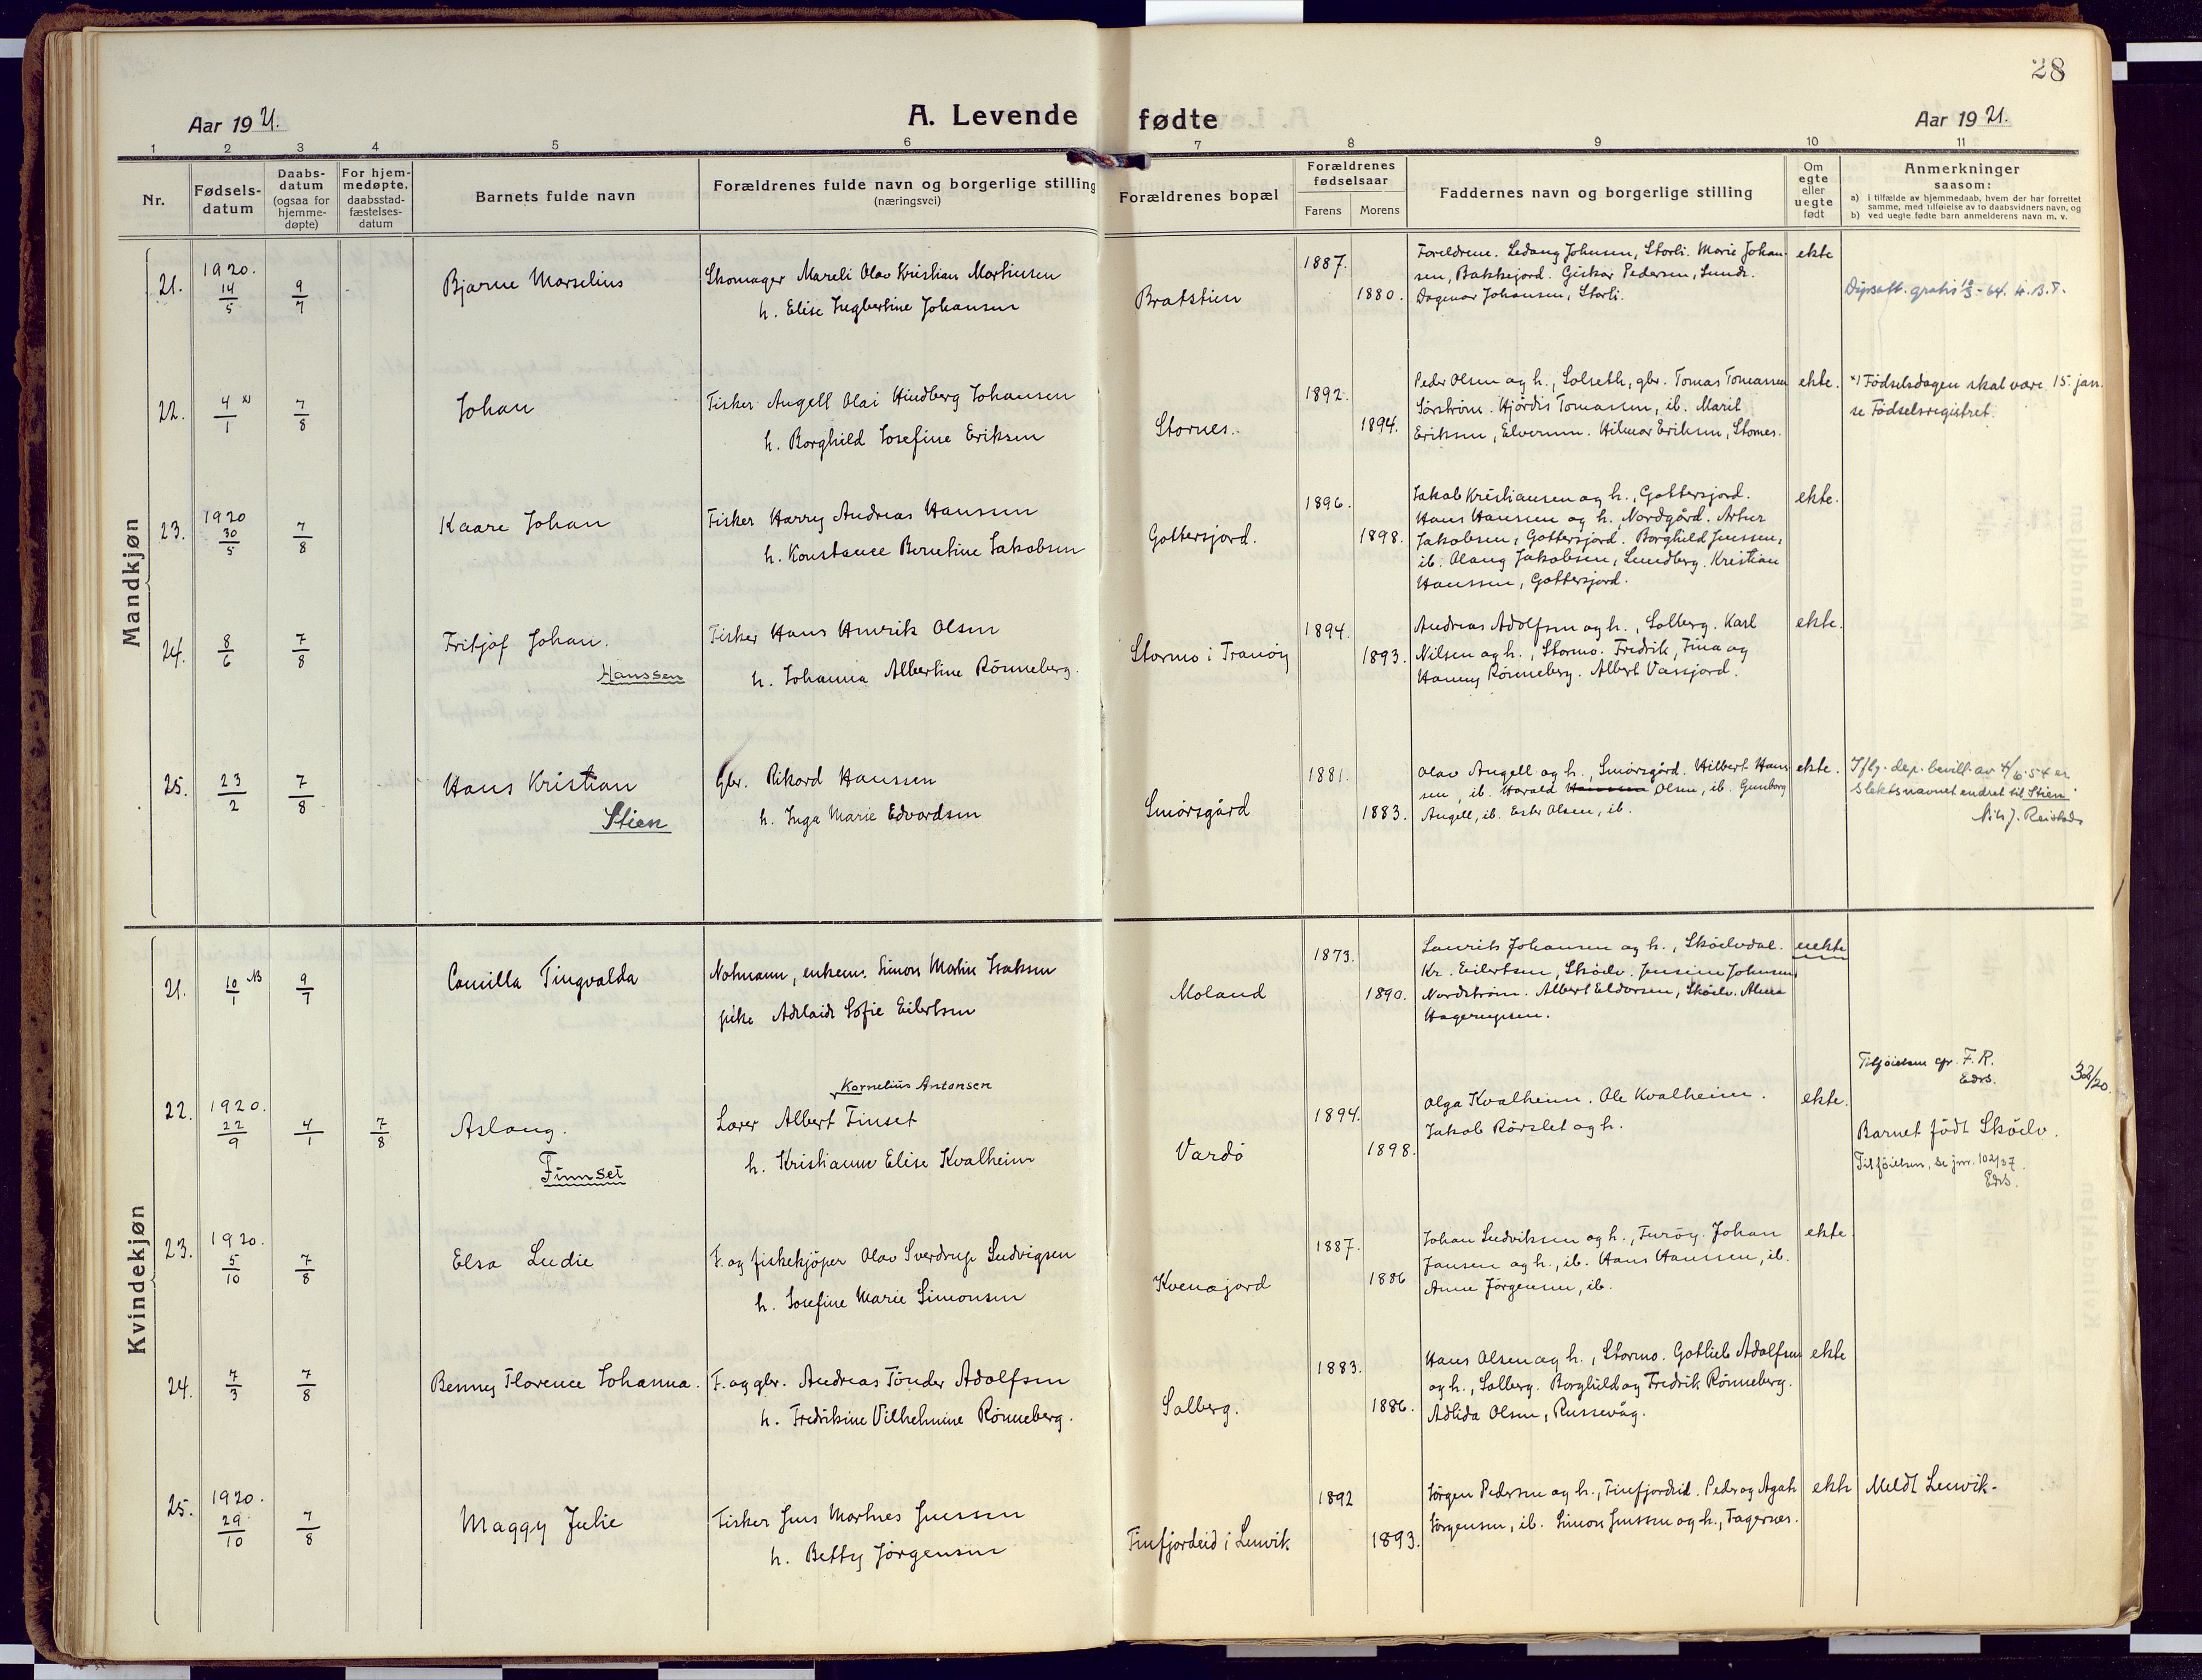 28
Aar 1921.
A. Levende fødte
Aar 1921.
1 2 3 4 5 6 7 8 9 10 11
Nr.
Fødsels-
datum
Daabs-
datum
(ogsaa for
hjemme-
døpte)
For hjem-
medøpte,
daabsstad-
fæstelses-
datum
Barnets fulde navn
Forældrenes fulde navn og borgerlige stilling
(næringsvei)
Forældrenes bopæl
Forældrenes
fødselsaar
Farens
Morens
Faddernes navn og borgerlige stilling
Om
egte
eller
uegte
født
Anmerkninger
saasom:
a) i tilfælde av hjemmedaab, hvem der har forrettet
samme, med tilføielse av to daabsvidners navn, og
b) ved uegte fødte barn anmelderens navn m. v.
Mandkjøn
21.
1920.
14/5
9/7
Bjarne Marselius
Skomager Mareli Olav Kristian Martinsen
h. Elise Ingbertine Johansen
Bratstien
1887.
1880.
Foreldrene. Ledang Johnsen, Storli. Marie Johan-
sen, Bakkejord. Giskar Pedersen, Sund.
Dagmar Johansen, Storli.
ekte
22.
4/1 x)
7/8
Johan
Fisker Angell Olai Hindberg Johansen
h. Borghild Josefine Eriksen
Stornes.
1892.
1894.
Peder Olsen og h., Solseth, gbr. Tomas Tomassen
Sørstrøm. Hjørdis Tomassen, ib. Marit
Eriksen, Elverum. Hilmar Eriksen, Stornes.
ekte.
x) Fødselsdagen skal være 15. jan.
se Fødselsregistret.
23.
1920
30/5
7/8
Kaare Johan
Fisker Harry Andreas Hansen
h. Konstance Berntine Jakobsen
Gottersjord.
1896.
1898.
Jakob Kristiansen og h., Gottersjord.
Hans Hanssen og h., Nordgård. Artur
Jakobsen, Gottersjord. Borghild Jenssen,
ib. Olaug Jakobsen, Lundberg. Kristian
Hanssen, Gottersjord.
ekte.
24.
8/6
7/8
Fritjof Johan.
Hanssen
Fisker Hans Henrik Olsen
h. Johanna Albertine Rönneberg.
Stormo i Tranöy
1894.
1893.
Andreas Adolfsen og h., Solberg. Karl
Nilsen og h., Stormo. Fredrik, Fina og
Hanny Rönneberg. Albert Vassjord.
ekte.
25.
23/2
7/8
Hans Kristian
Stien
Gbr. Rikard Hanssen
h. Inga Marie Edvardsen
Smörsgård
1881.
1883.
Olav Angell og h., Smörsgård. Hilbert Hans-
sen, ib. Harald Olsen, ib. Gunborg
Angell, ib. Ester Olsen, ib.
ekte.
Iflg. dep. bevill. av 4/6-54 er
slektsnavnet endret til Stien
Kvindekjøn
21.
10/1 NB
9/7
Camilla Tingvalda
Notmann, enkem. Simon Martin Isaksen
pike Adelaide Sofie Eilertsen
Moland
1873.
1890.
Laurits Johansen og h., Sköelvdal.
Kr. Eilertsen, Sköelv. Jensine Johnsen,
Nordström. Albert Eldorsen, Sköelv. Alma
Hagerupsen.
uekte
22.
1920.
22/9
4/1
7/8
Aslaug.
Finnset
Kornelius Antonsen
Lærer Albert Finset
h. Kristianne Elise Kvalheim
Vardö
1894.
1898.
Olga Kvalheim. Ole Kvalheim.
Jakob Rörslet og h.
ekte.
Tilföielsen cfr. F. R.
Edvs.
32/20.
Barnet födt Sköelv.
Tilföielsen, se jnr. 102/37.
Edvs.
23.
1920.
5/10
7/8
Elsa Ludie
F. og fiskekjöper Olav Sverdrup Ludvigsen
h. Josefine Marie Simonsen
Kvenajord
1887.
1886
Johan Ludviksen og h., Furöy. Johan
Jansen og h., ib. Hans Hanssen, ib.
Anne Jörgensen, ib.
ekte.
24.
7/3
7/8
Benny Florence Johanna.
F. og gbr. Andreas Tönder Adolfsen
h. Fredrikine Vilhelmine Rönneberg.
Solberg.
1883.
1886.
Hans Olsen og h., Stormo. Gotlieb Adolfsen
og h., Solberg. Borghild og Fredrik Rönneberg.
Adlida Olsen, Russevåg.
ekte
25.
1920.
29/10
7/8
Maggy Julie
Fisker Jens Martnes Jenssen
h. Betty Jörgensen
Finfjordeid i Lenvik
1892
1893.
Jörgen Pedersen og h., Finfjordeid. Peder og Agate
Jörgensen, ib. Simon Jenssen og h., Fagernes.
ekte
Meldt Lenvik.